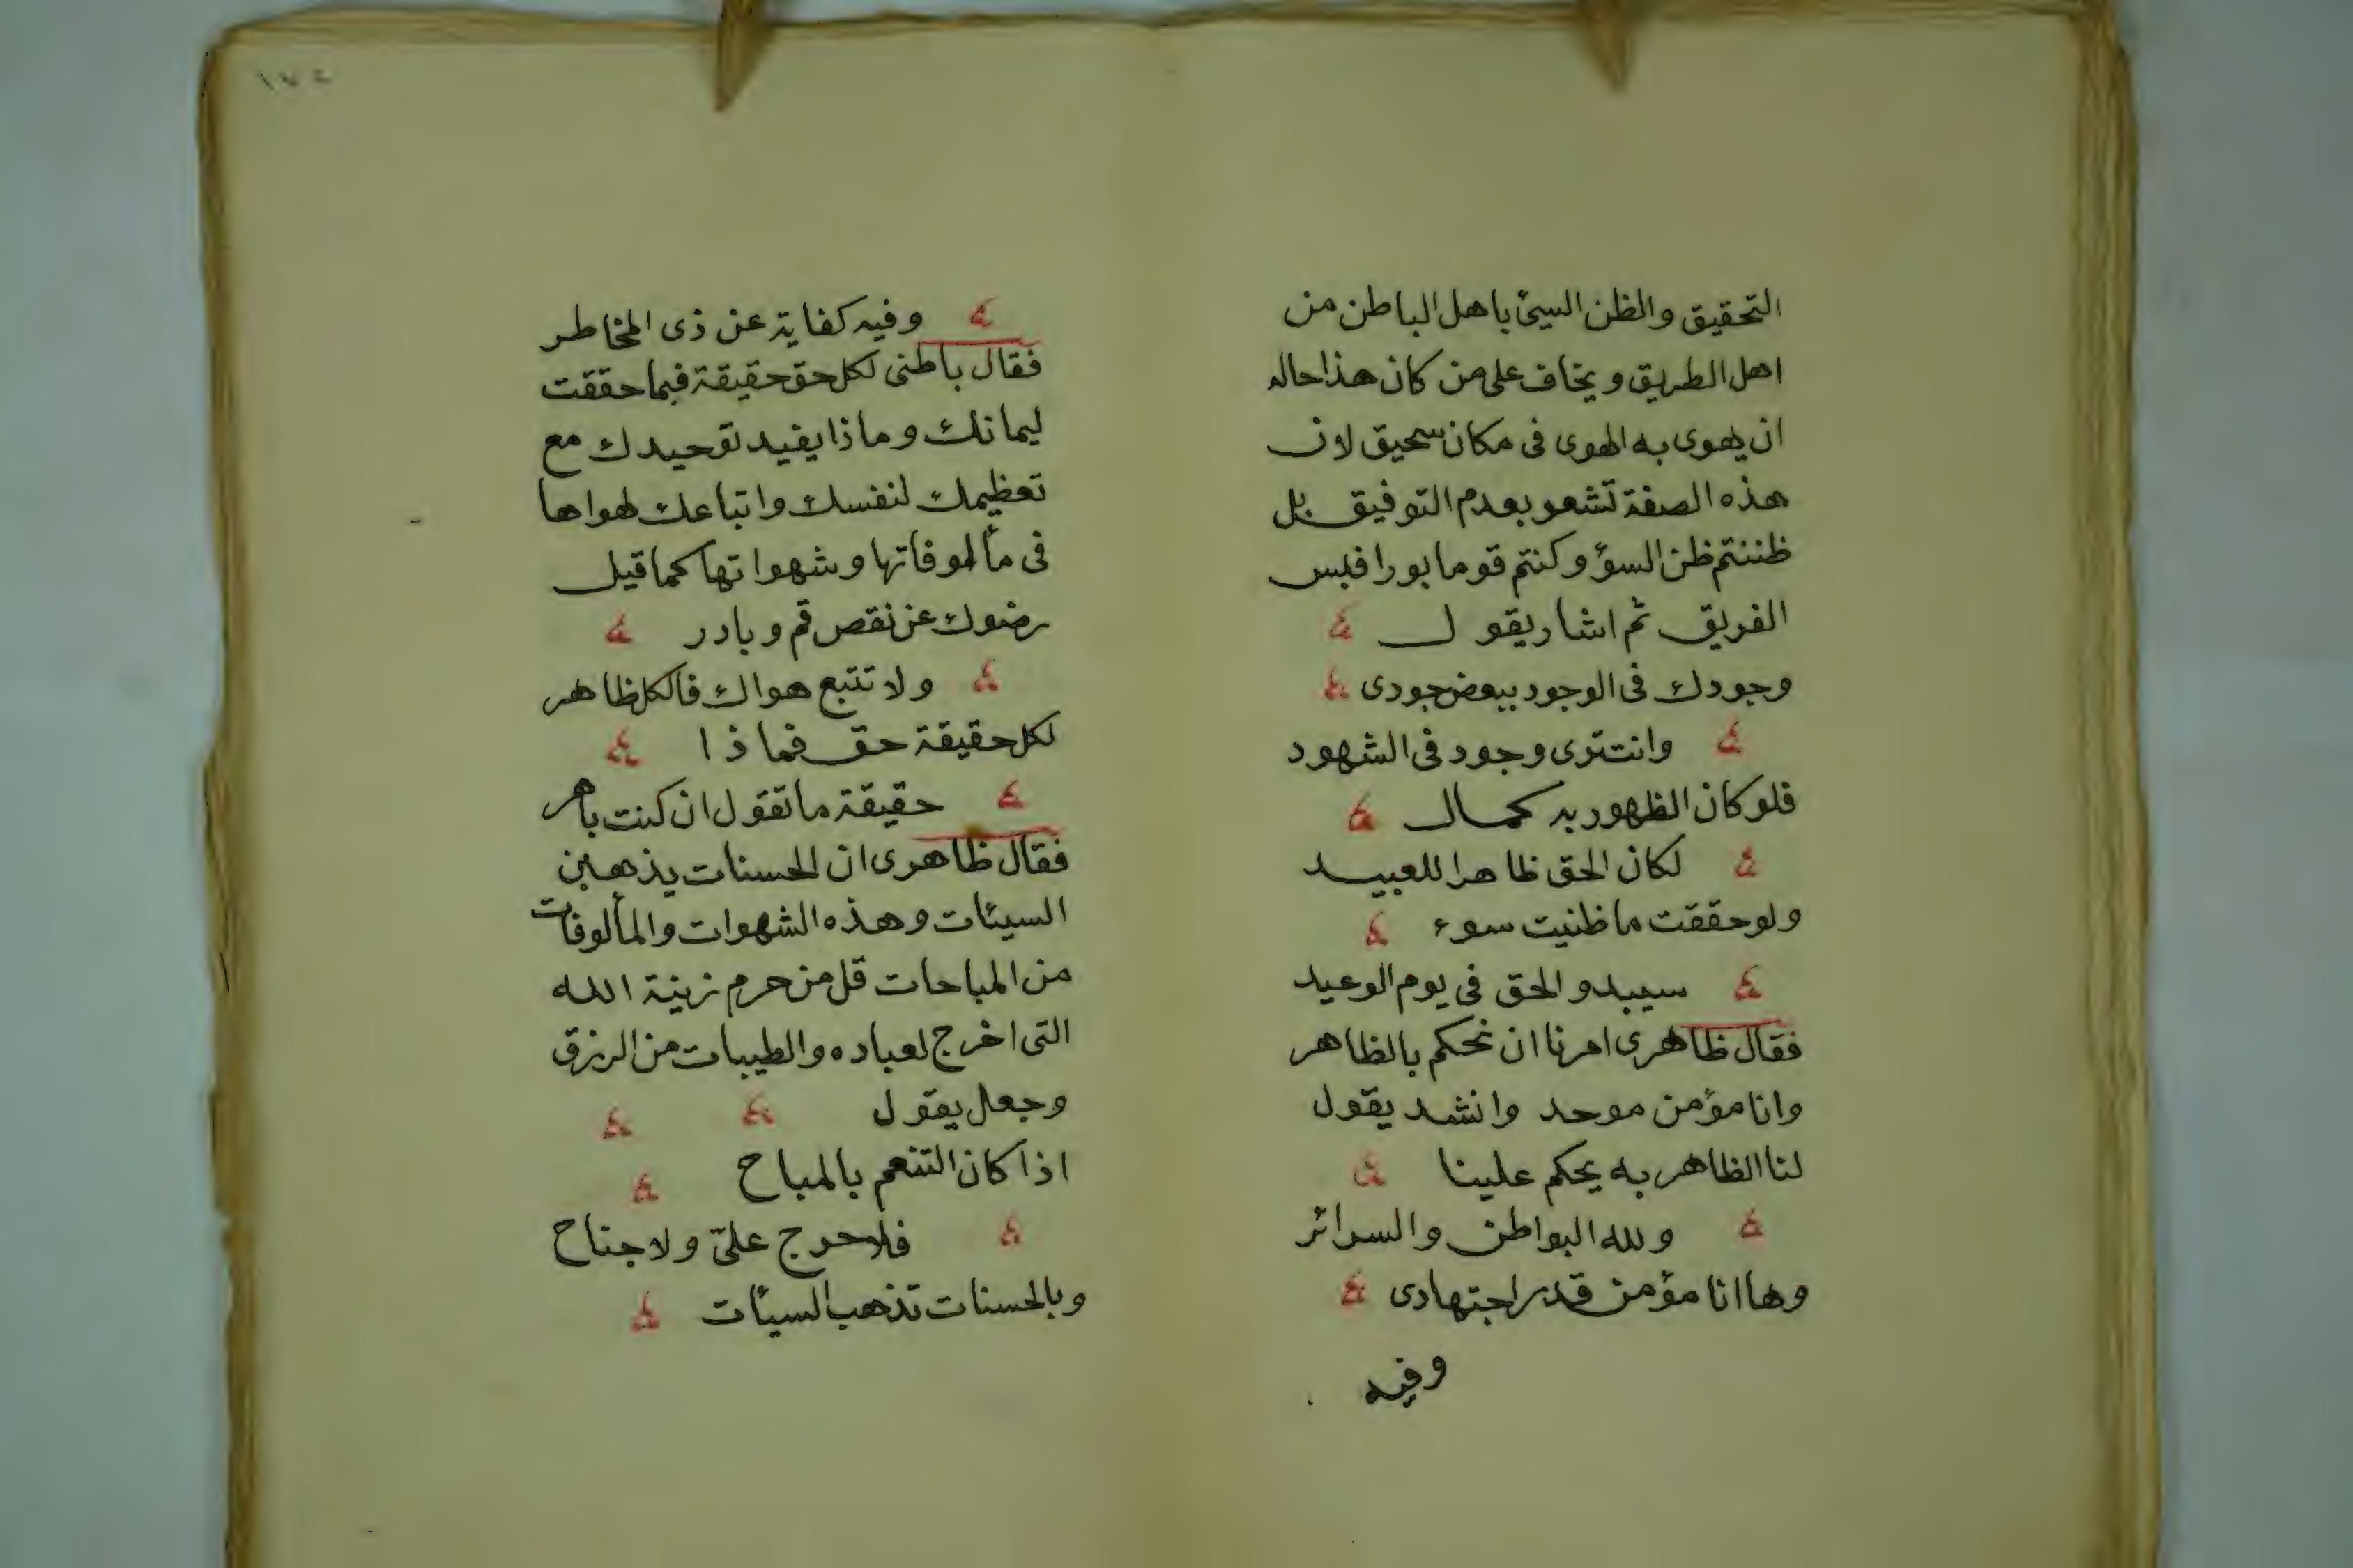 التحقيق والظن السيئ باهل الباطن من
اهل الطريق ويخاف على من كان هذا حاله
ان يهوى به الهوى فى مكان سحيق لان
هذه الصفة تشعر بعدم التوفيق بل
ظننتم ظن السؤ وكنتم قوما بورا فبس
الفريق ثم اشار يقول
وجودك فى الوجود ببعض جودى
وانت ترى وجود فى الشهود
فلو كان الظهور به كمال
لكان الحق ظاهرا للعبيد
ولو حققت ما ظنيت سوء
سيبدو الحق فى يوم الوعيد
فقال ظاهرى امرنا ان نحكم بالظاهر
وانا مؤمن موحد وانشد يقول
لنا الظاهر به يحكم علينا
ولله البواطن والسرائر
وها انا مؤمن قدر اجتهادى
وفيه
١٧٤
وفيه كفاية عن ذى المخاطر
فقال باطنى لكل حق حقيقة فيما حققت
ليمانك وماذا يفيد توحيدك مع
تعظيمك لنفسك واتباعك لهواها
فى مألوفاتها وشهواتها كما قيل
رضوك عن نقص قم وبادر
ولا تتبع هواك فالكل ظاهر
لكل حقيقة حق فماذا
حقيقة ما تقول ان كنت باهر
فقال ظاهرى ان الحسنات يذهبن
السيئات وهذه الشهوات والمألوفات
من المباحات قل من حرم زينة الله
التى اخرج لعباده والطيبات من الرزق
وجعل يقول
اذا كان التنعم بالمباح
فلا حرج علىّ ولا جناح
وبالحسنات تذهب السيئات